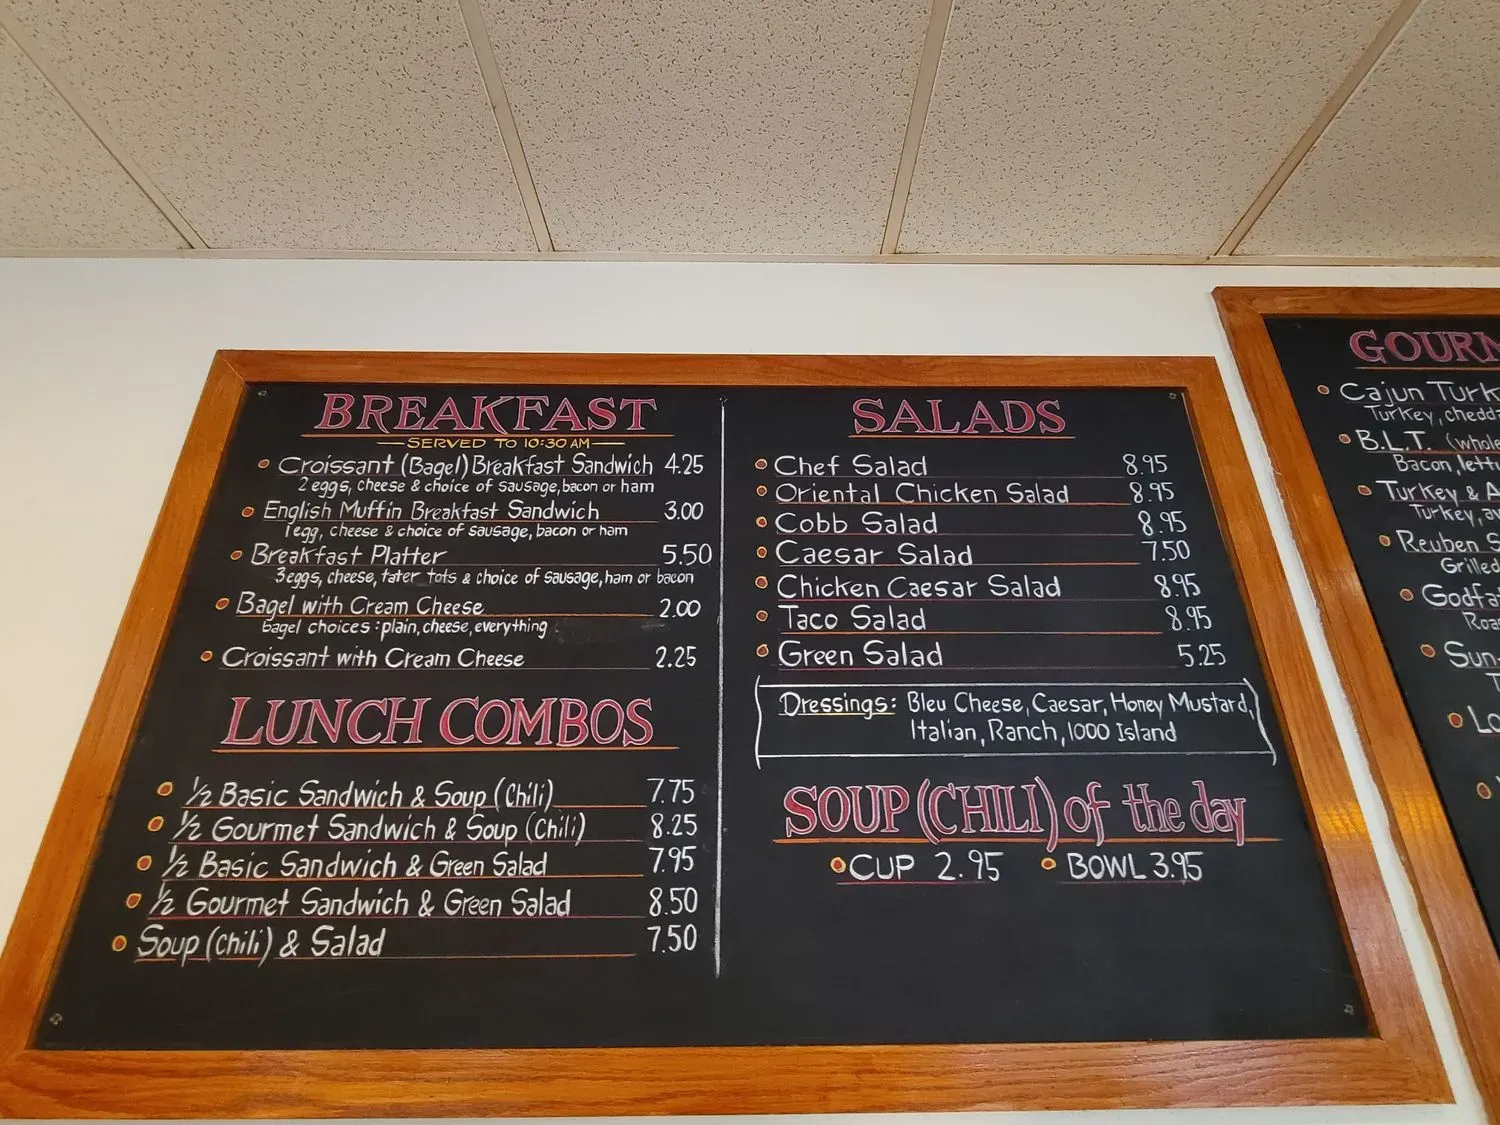 BREAKFAST
SERVED TO 10:30 AM
Croissant (Bagel) Breakfast Sandwich 4.25
2 eggs, cheese & choice of sausage, bacon or ham
English Muffin Breakfast Sandwich 3.00
1 egg, cheese & choice of sausage, bacon or ham
Breakfast Platter 5.50
3 eggs, cheese, tater tots & choice of sausage, ham or bacon
Bagel with Cream Cheese 2.00
bagel choices: plain, cheese, everything
Croissant with Cream Cheese 2.25
LUNCH COMBOS
1/2 Basic Sandwich & Soup (Chili) 7.75
1/2 Gourmet Sandwich & Soup (Chili) 8.25
1/2 Basic Sandwich & Green Salad 7.95
1/2 Gourmet Sandwich & Green Salad 8.50
Soup (Chili) & Salad 7.50
SALADS
Chef Salad 8.95
Oriental Chicken Salad 8.95
Cobb Salad 8.95
Caesar Salad 7.50
Chicken Caesar Salad 8.95
Taco Salad 8.95
Green Salad 5.25
Dressings: Bleu Cheese, Caesar, Honey Mustard,
Italian, Ranch, 1000 Island
SOUP (CHILI) of the day
CUP 2.95 BOWL 3.95
GOURM
Cajun Turk
Turkey, chedd
B.L.T. (whole
Bacon, lettu
Turkey & A
Turkey, av
Reuben S
Grilled
Godfa
Roa
Sun-
T
Lo